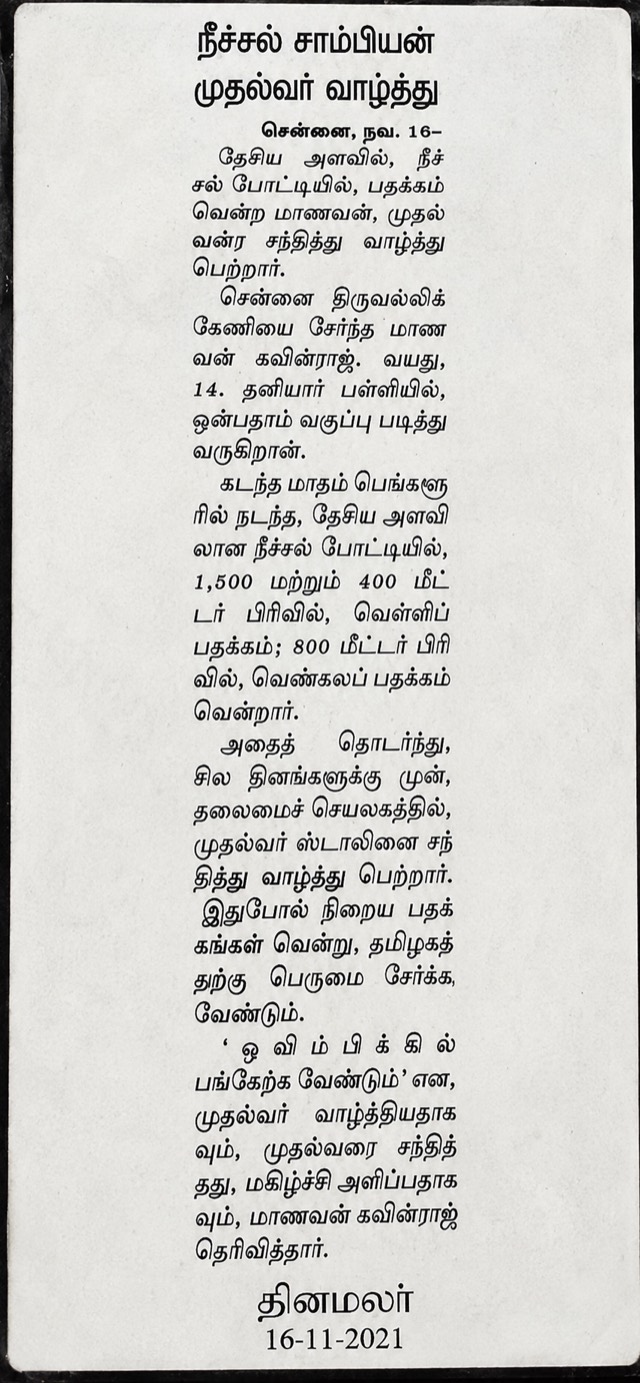 நீச்சல் சாம்பியன்
முதல்வர் வாழ்த்து
சென்னை, நவ. 16–
தேசிய அளவில், நீச்
சல் போட்டியில், பதக்கம்
வென்ற மாணவன், முதல்
வன்ர சந்தித்து வாழ்த்து
பெற்றார்.
சென்னை திருவல்லிக்
கேணியை சேர்ந்த மாண
வன் கவின்ராஜ். வயது,
14. தனியார் பள்ளியில்,
ஒன்பதாம் வகுப்பு படித்து
வருகிறான்.
கடந்த மாதம் பெங்களூ
ரில் நடந்த, தேசிய அளவி
லான நீச்சல் போட்டியில்,
1,500 மற்றும் 400 மீட்
டர் பிரிவில், வெள்ளிப்
பதக்கம்; 800 மீட்டர் பிரி
வில், வெண்கலப் பதக்கம்
வென்றார்.
அதைத் தொடர்ந்து,
சில தினங்களுக்கு முன்,
தலைமைச் செயலகத்தில்,
முதல்வர் ஸ்டாலினை சந்
தித்து வாழ்த்து பெற்றார்.
இதுபோல் நிறைய பதக்
கங்கள் வென்று, தமிழகத்
துற்கு பெருமை சேர்க்க,
வேண்டும்.
‘ ஒ வி ம் பி க் கி ல்
பங்கேற்க வேண்டும்’ என,
முதல்வர் வாழ்த்தியதாக
வும், முதல்வரை சந்தித்
தது, மகிழ்ச்சி அளிப்பதாக
வும், மாணவன் கவின்ராஜ்
தெரிவித்தார்.
தினமலர்
16-11-2021